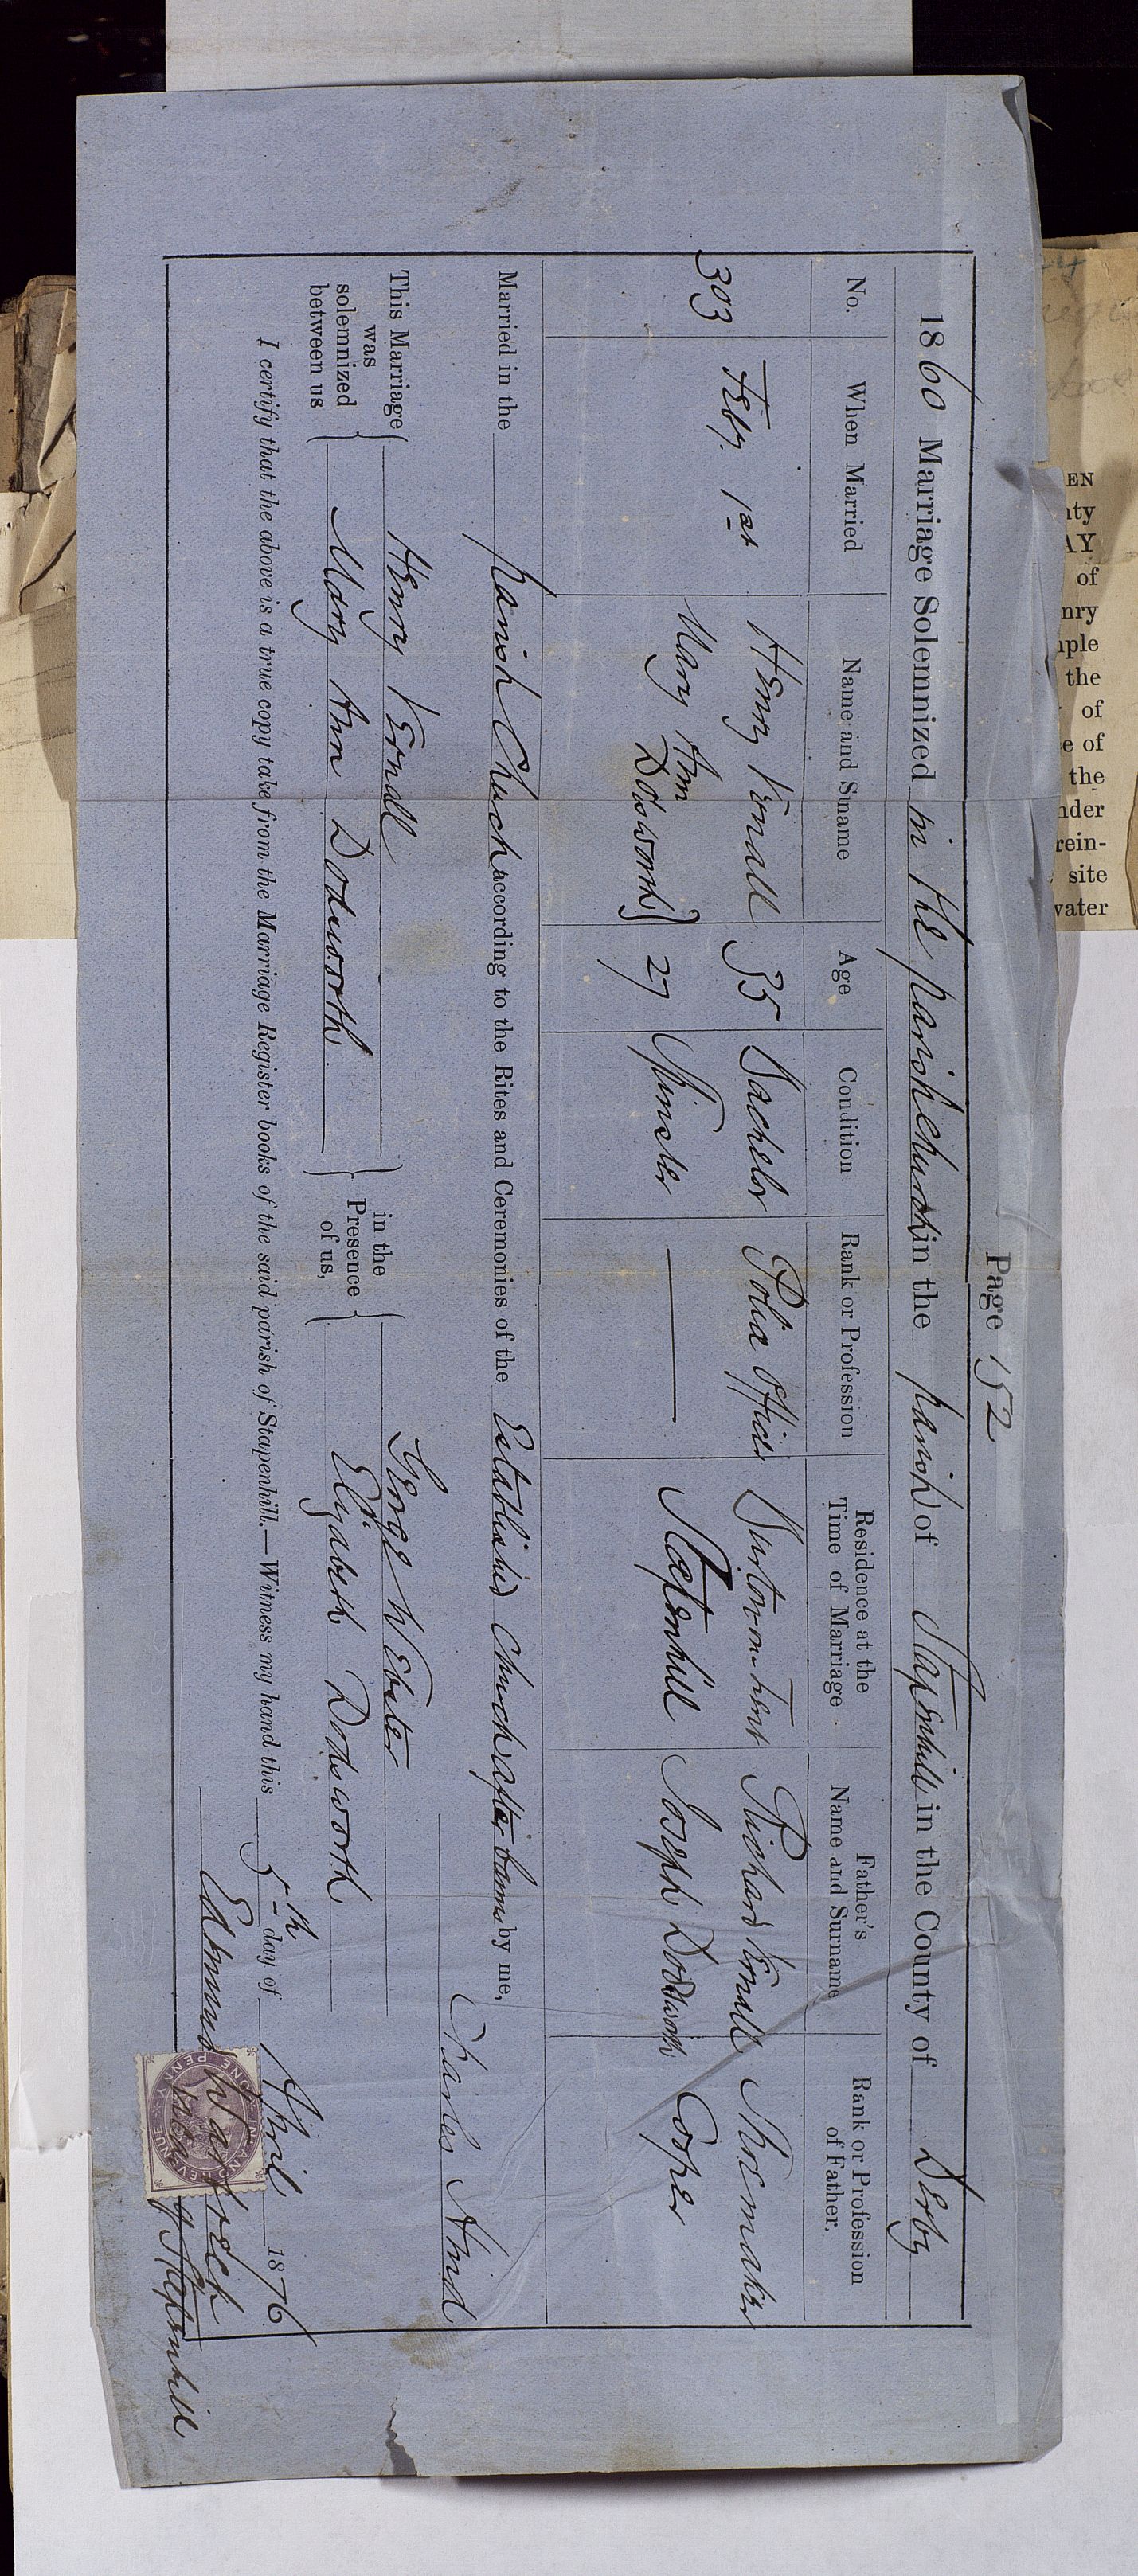 Page 152
1860 Marriage Solemnized in the parish church in the parish of Stapenhill in the County of Derby
No. When Married Name and Siname Age Condition Rank or Profession Residence at the Time of Marriage Father's Name and Surname Rank or Profession of Father.
303 Feby. 1st Henry Vernall 35 Bachelor Police Officer Burton on Trent Richard Vernall Shoemaker
Mary Ann Dodsworth } 27 Spinster — Stapenhill Joseph Dodsworth Cooper
Married in the parish Church according to the Rites and Ceremonies of the Established Church after banns by me,
Charles
This Marriage was solemnized between us { Henry Vernall } in the Presence of us, { George Webster
Mary Ann Dodsworth Elizabeth Dodsworth
I certify that the above is a true copy take from the Marriage Register books of the said parish of Stapenhill.—Witness my hand this 5th day of April 1876
Edmund
of Stapenhill
INLAND REVENUE
ONE PENNY
EN
nty
AY
of
nry
mple
the
of
e of
the
nder
rein-
site
water